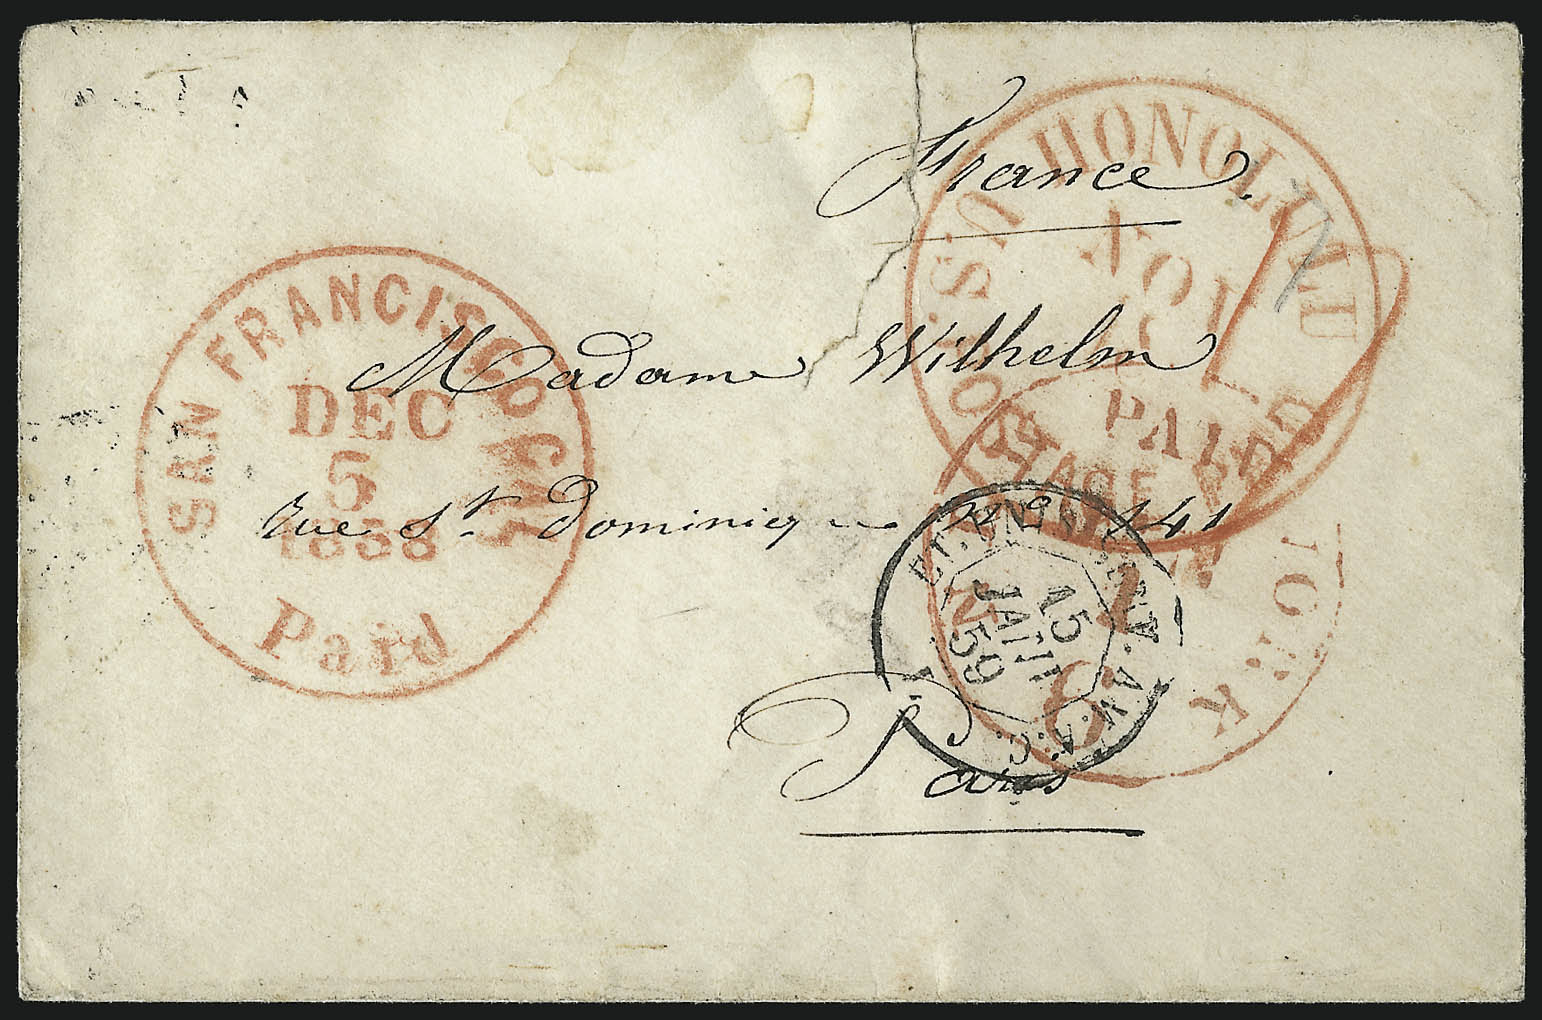 France.
Madame Wilhelm
rue St. Dominique No 141
Paris
SAN FRANCISCO CAL
DEC
5
1858
Paid
HONOLULU
U.S. POSTAGE PAID
NOV
PAID
N YORK
ET. UNIS SERV. AM. A.C.
15
JANV
59